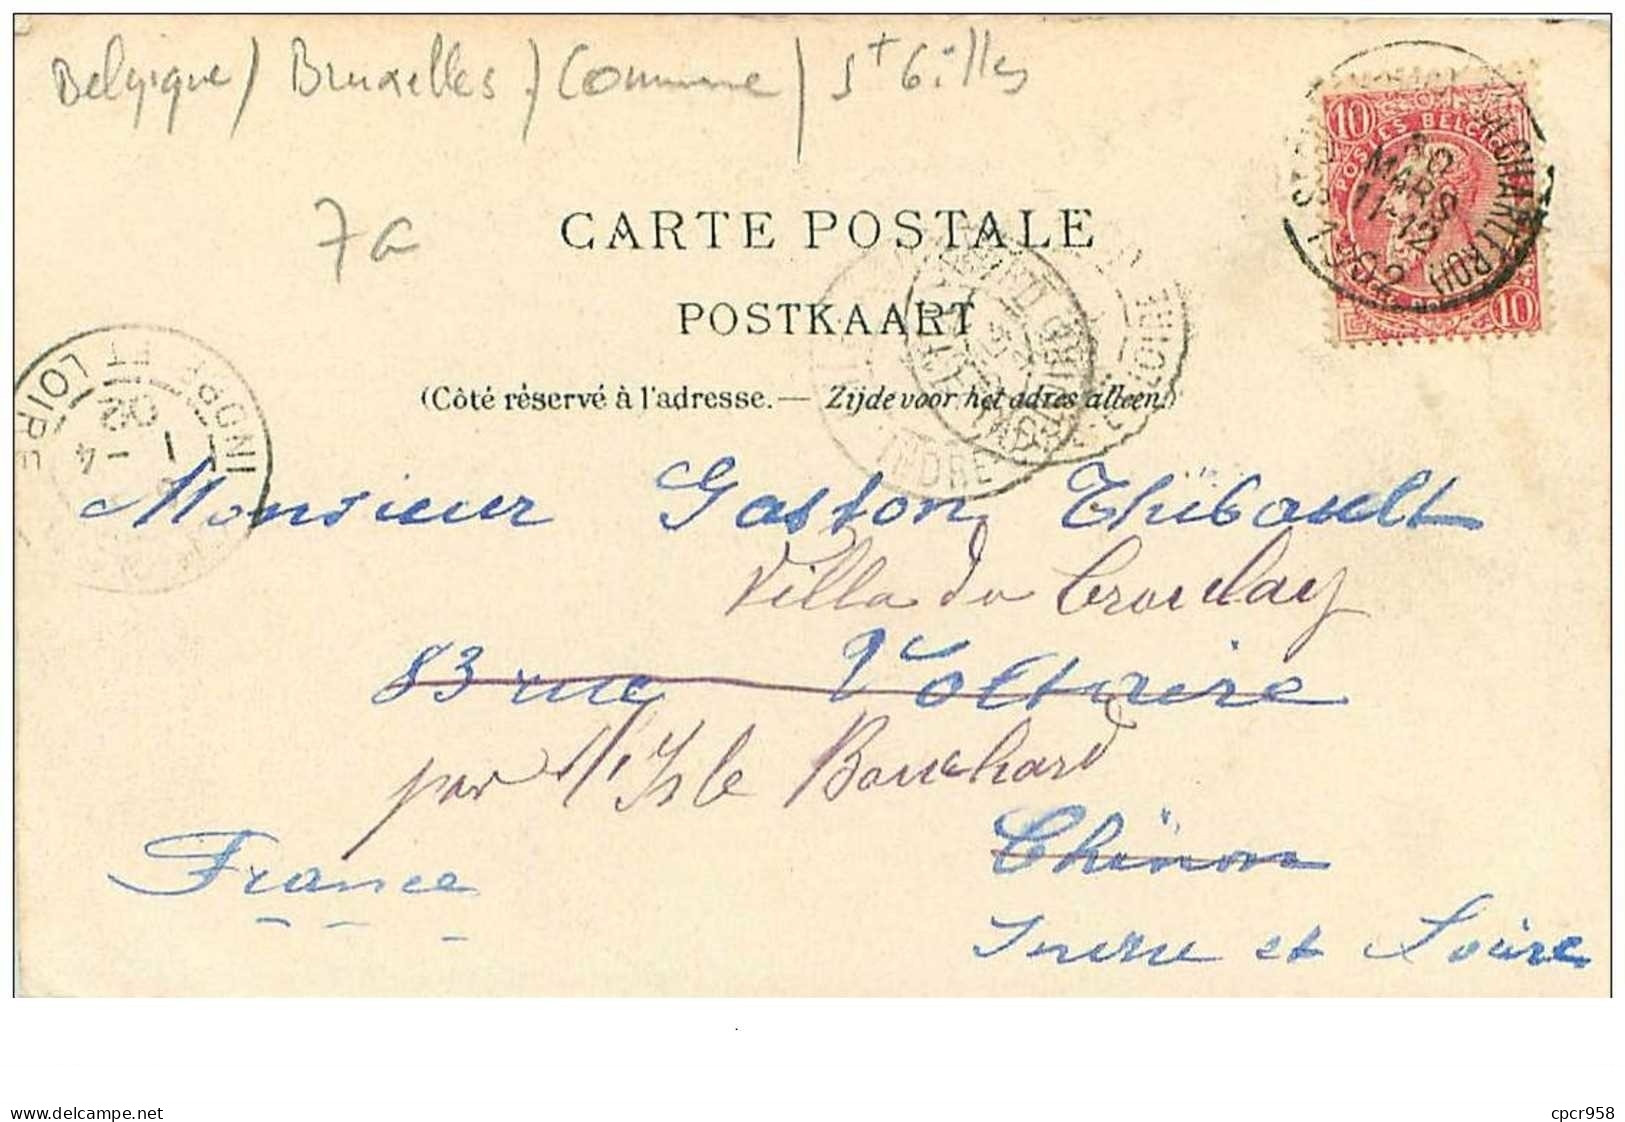 Belgique / Bruxelles / Commune / St Gilles
7a
CARTE POSTALE
POSTKAART
(Côté réservé à l'adresse. — Zijde voor het adres alleen.)
10 10
POSTES BELG
MARS
11-12
CHARLEROI
10
INDRE ET LOIRE
1 - 4
02
INDRE-
LOIRE
Monsieur Gaston Thibault
Villa du
83 rue Voltaire
par l'Isle Bouchard
Chinon
France
Indre et Loire
www.delcampe.net
cpcr958